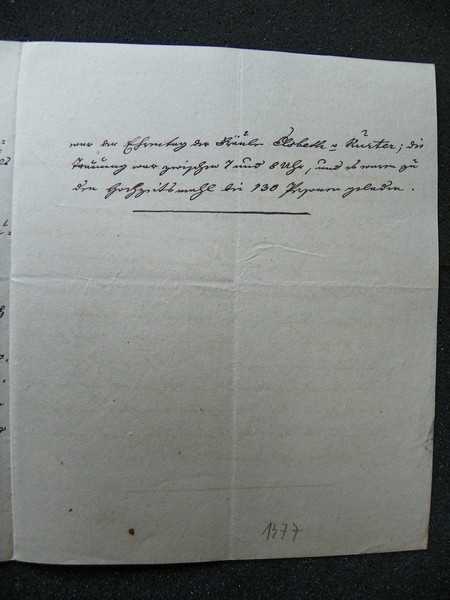 war der Ehrentag der Fräule Elsbeth v Kurter; die
Trauung war zwischen 7 und 8 Uhr, und es waren zu
den Hochzeitsmahl bei 130 Personen geladen.
1377